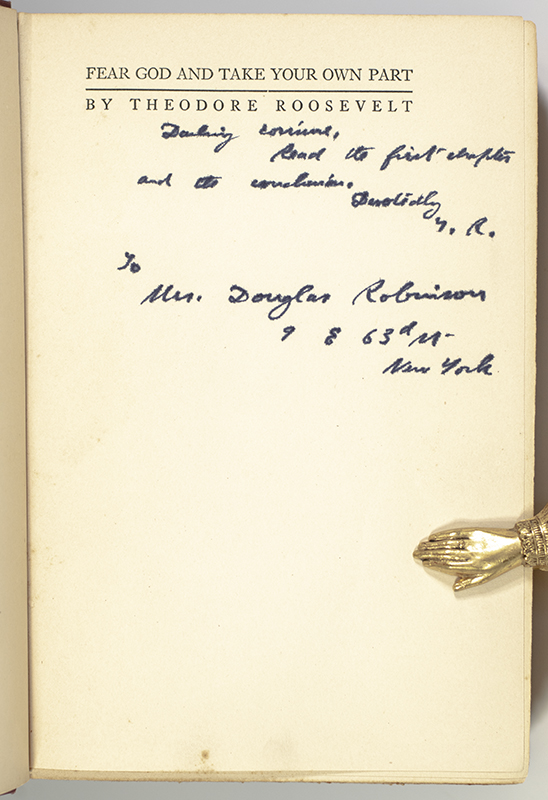 FEAR GOD AND TAKE YOUR OWN PART
BY THEODORE ROOSEVELT
Darling Corinne,
Read the first chapter
and the conclusion.
Devotedly
T. R.
To
Mrs. Douglas Robinson
9 E 63d St
New York